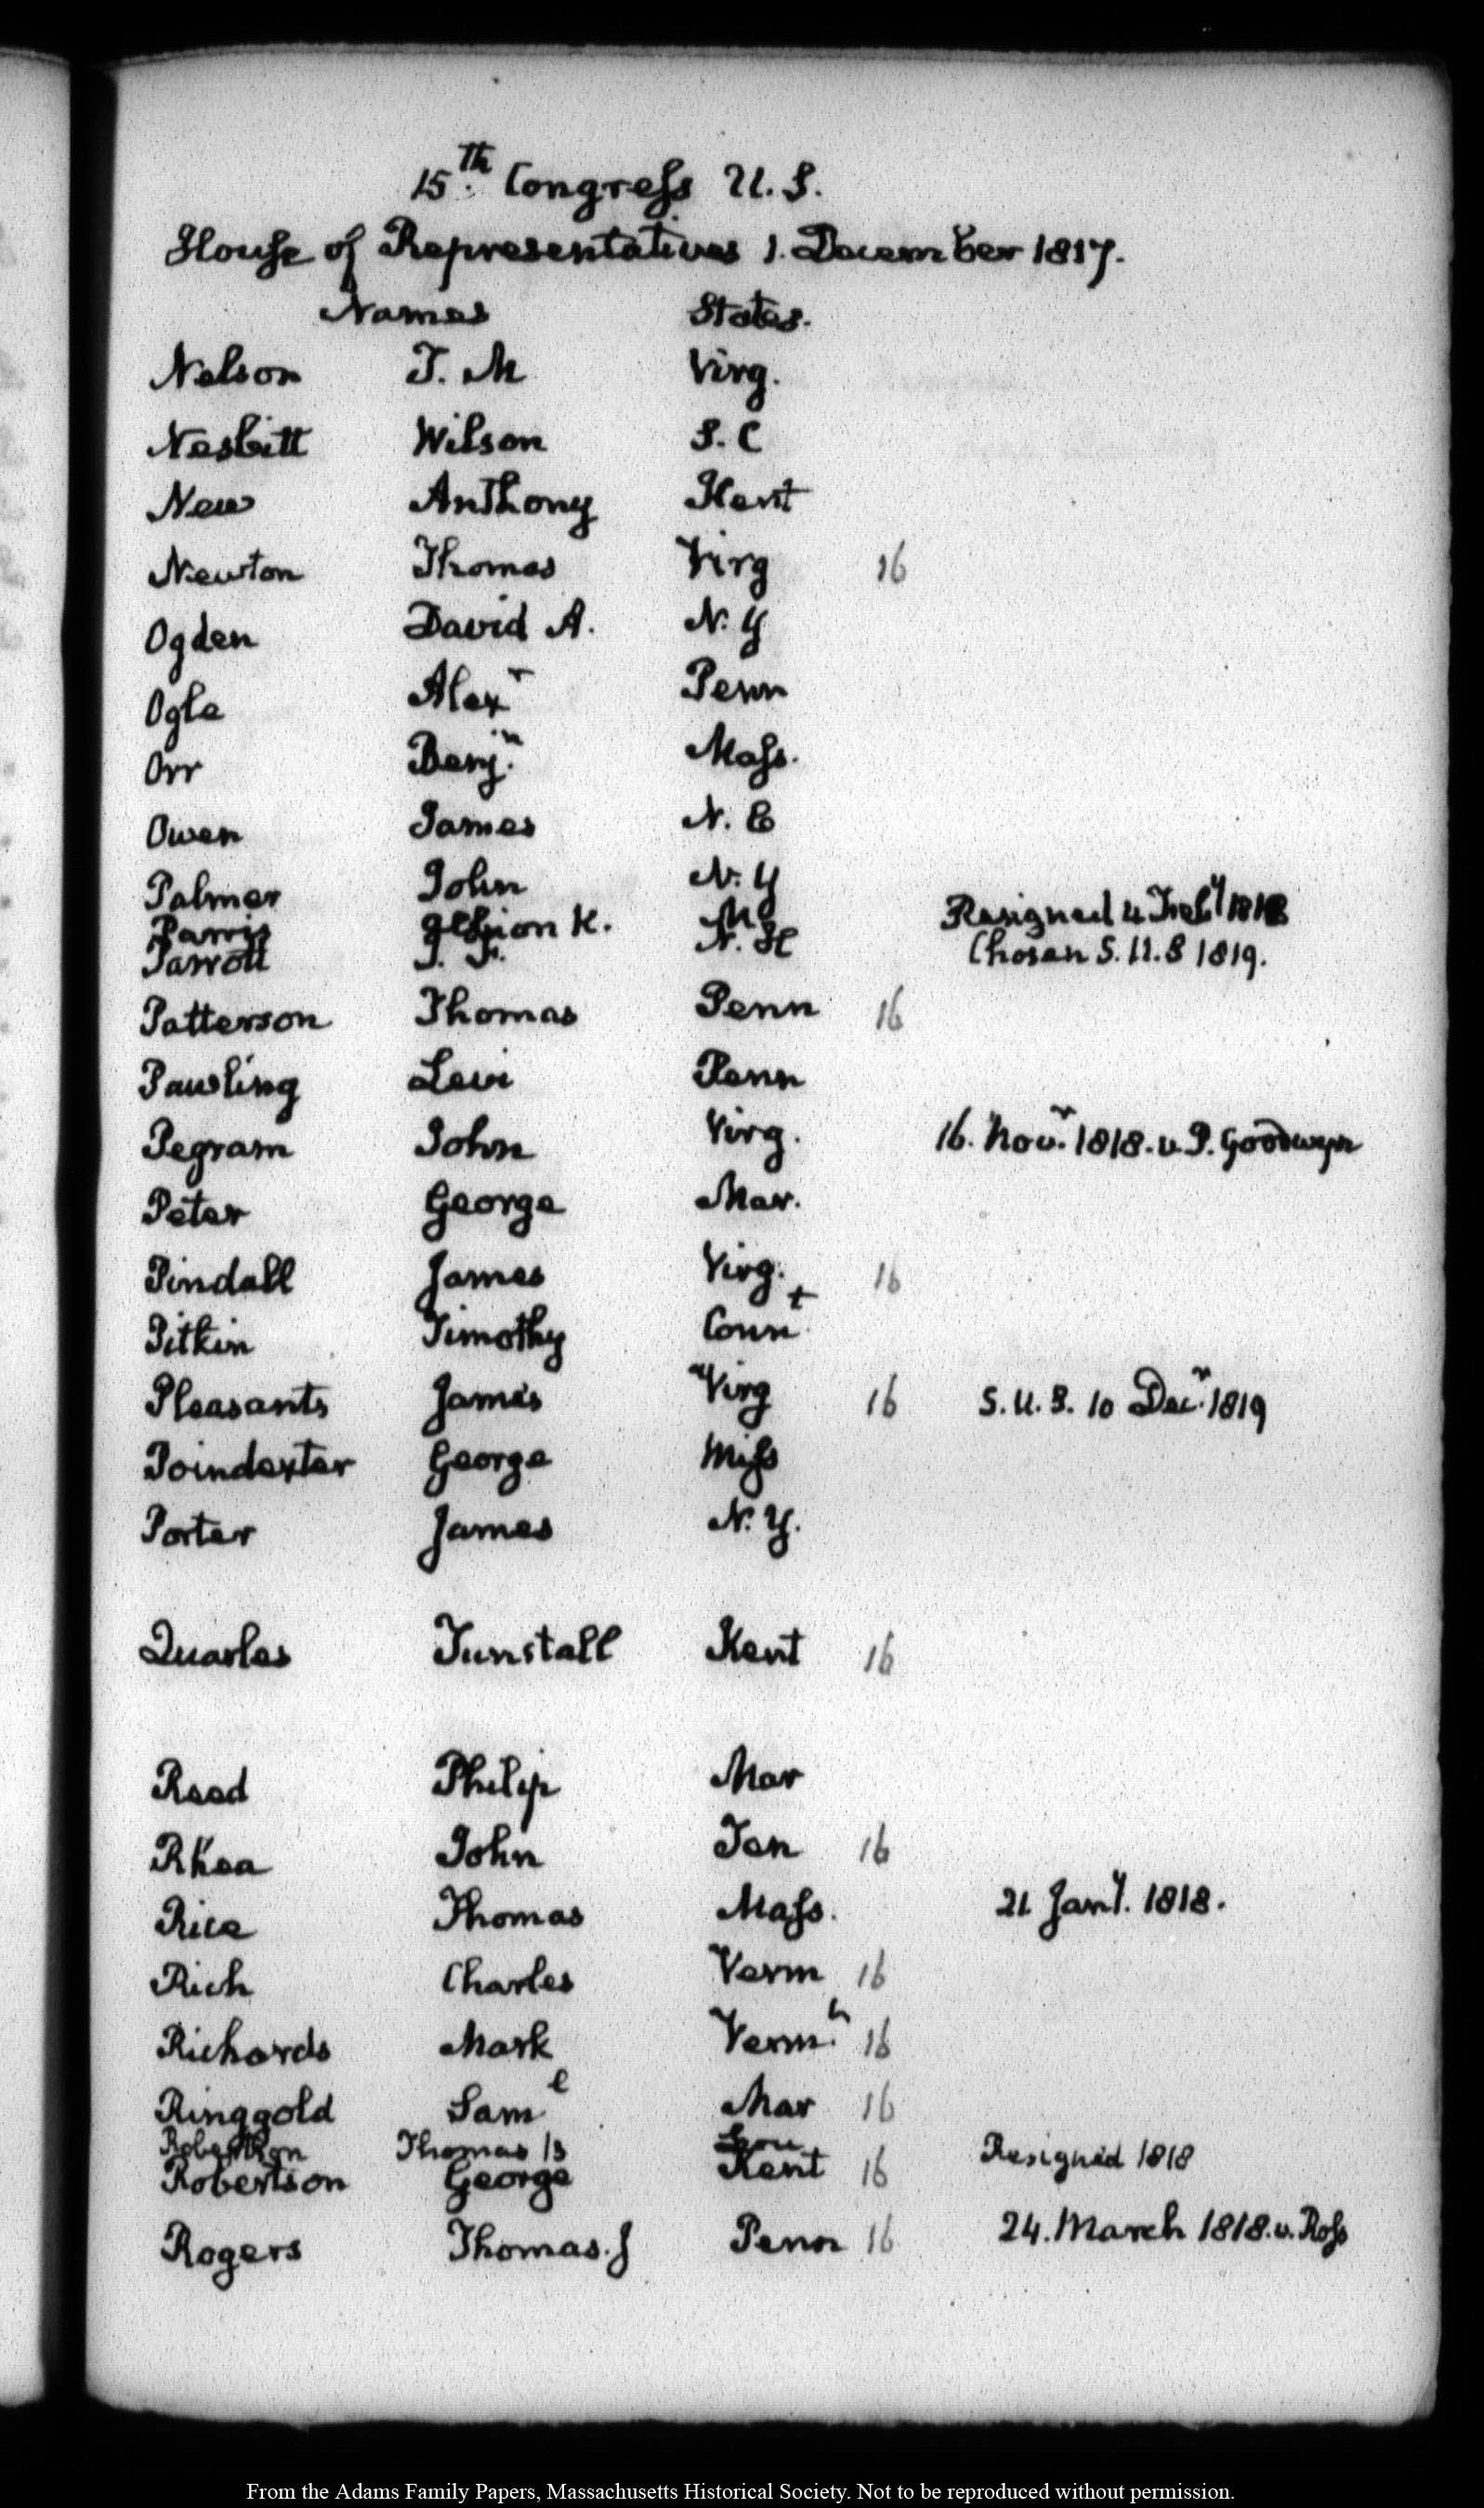 15.th Congress U.S.
House of Representatives 1. December 1817.
Names States.
Nelson T. M Virg.
Nesbitt Wilson S. C
New Anthony Kent
Newton Thomas Virg 16
Ogden David A. N. Y
Ogle Alexr Penn
Orr Benj.n Mass.
Owen James N. C
Palmer John N. Y
Parris Albion K. M Resigned 4 Feby 1818
Parrott J. F. N. H Chosen S. U. S 1819.
Patterson Thomas Penn 16
Pawling Levi Penn
Pegram John Virg. 16. Nov.r 1818. v. P. Goodwyn
Peter George Mar.
Pindall James Virg. 16
Pitkin Timothy Connt.
Pleasants James Virg 16 S. U. S. 10 Dec.r 1819
Poindexter George Miss
Porter James N. Y.
Quarles Tunstall Kent 16
Reed Philip Mar
Rhea John Ten 16
Rice Thomas Mass. 21 Jany. 1818.
Rich Charles Verm 16
Richards Mark Verm. 16
Ringgold Saml Mar 16
Robertson Thomas B Lou Resigned 1818
Robertson George Kent 16
Rogers Thomas. J Penn 16 24. March 1818. v. Ross
From the Adams Family Papers, Massachusetts Historical Society. Not to be reproduced without permission.